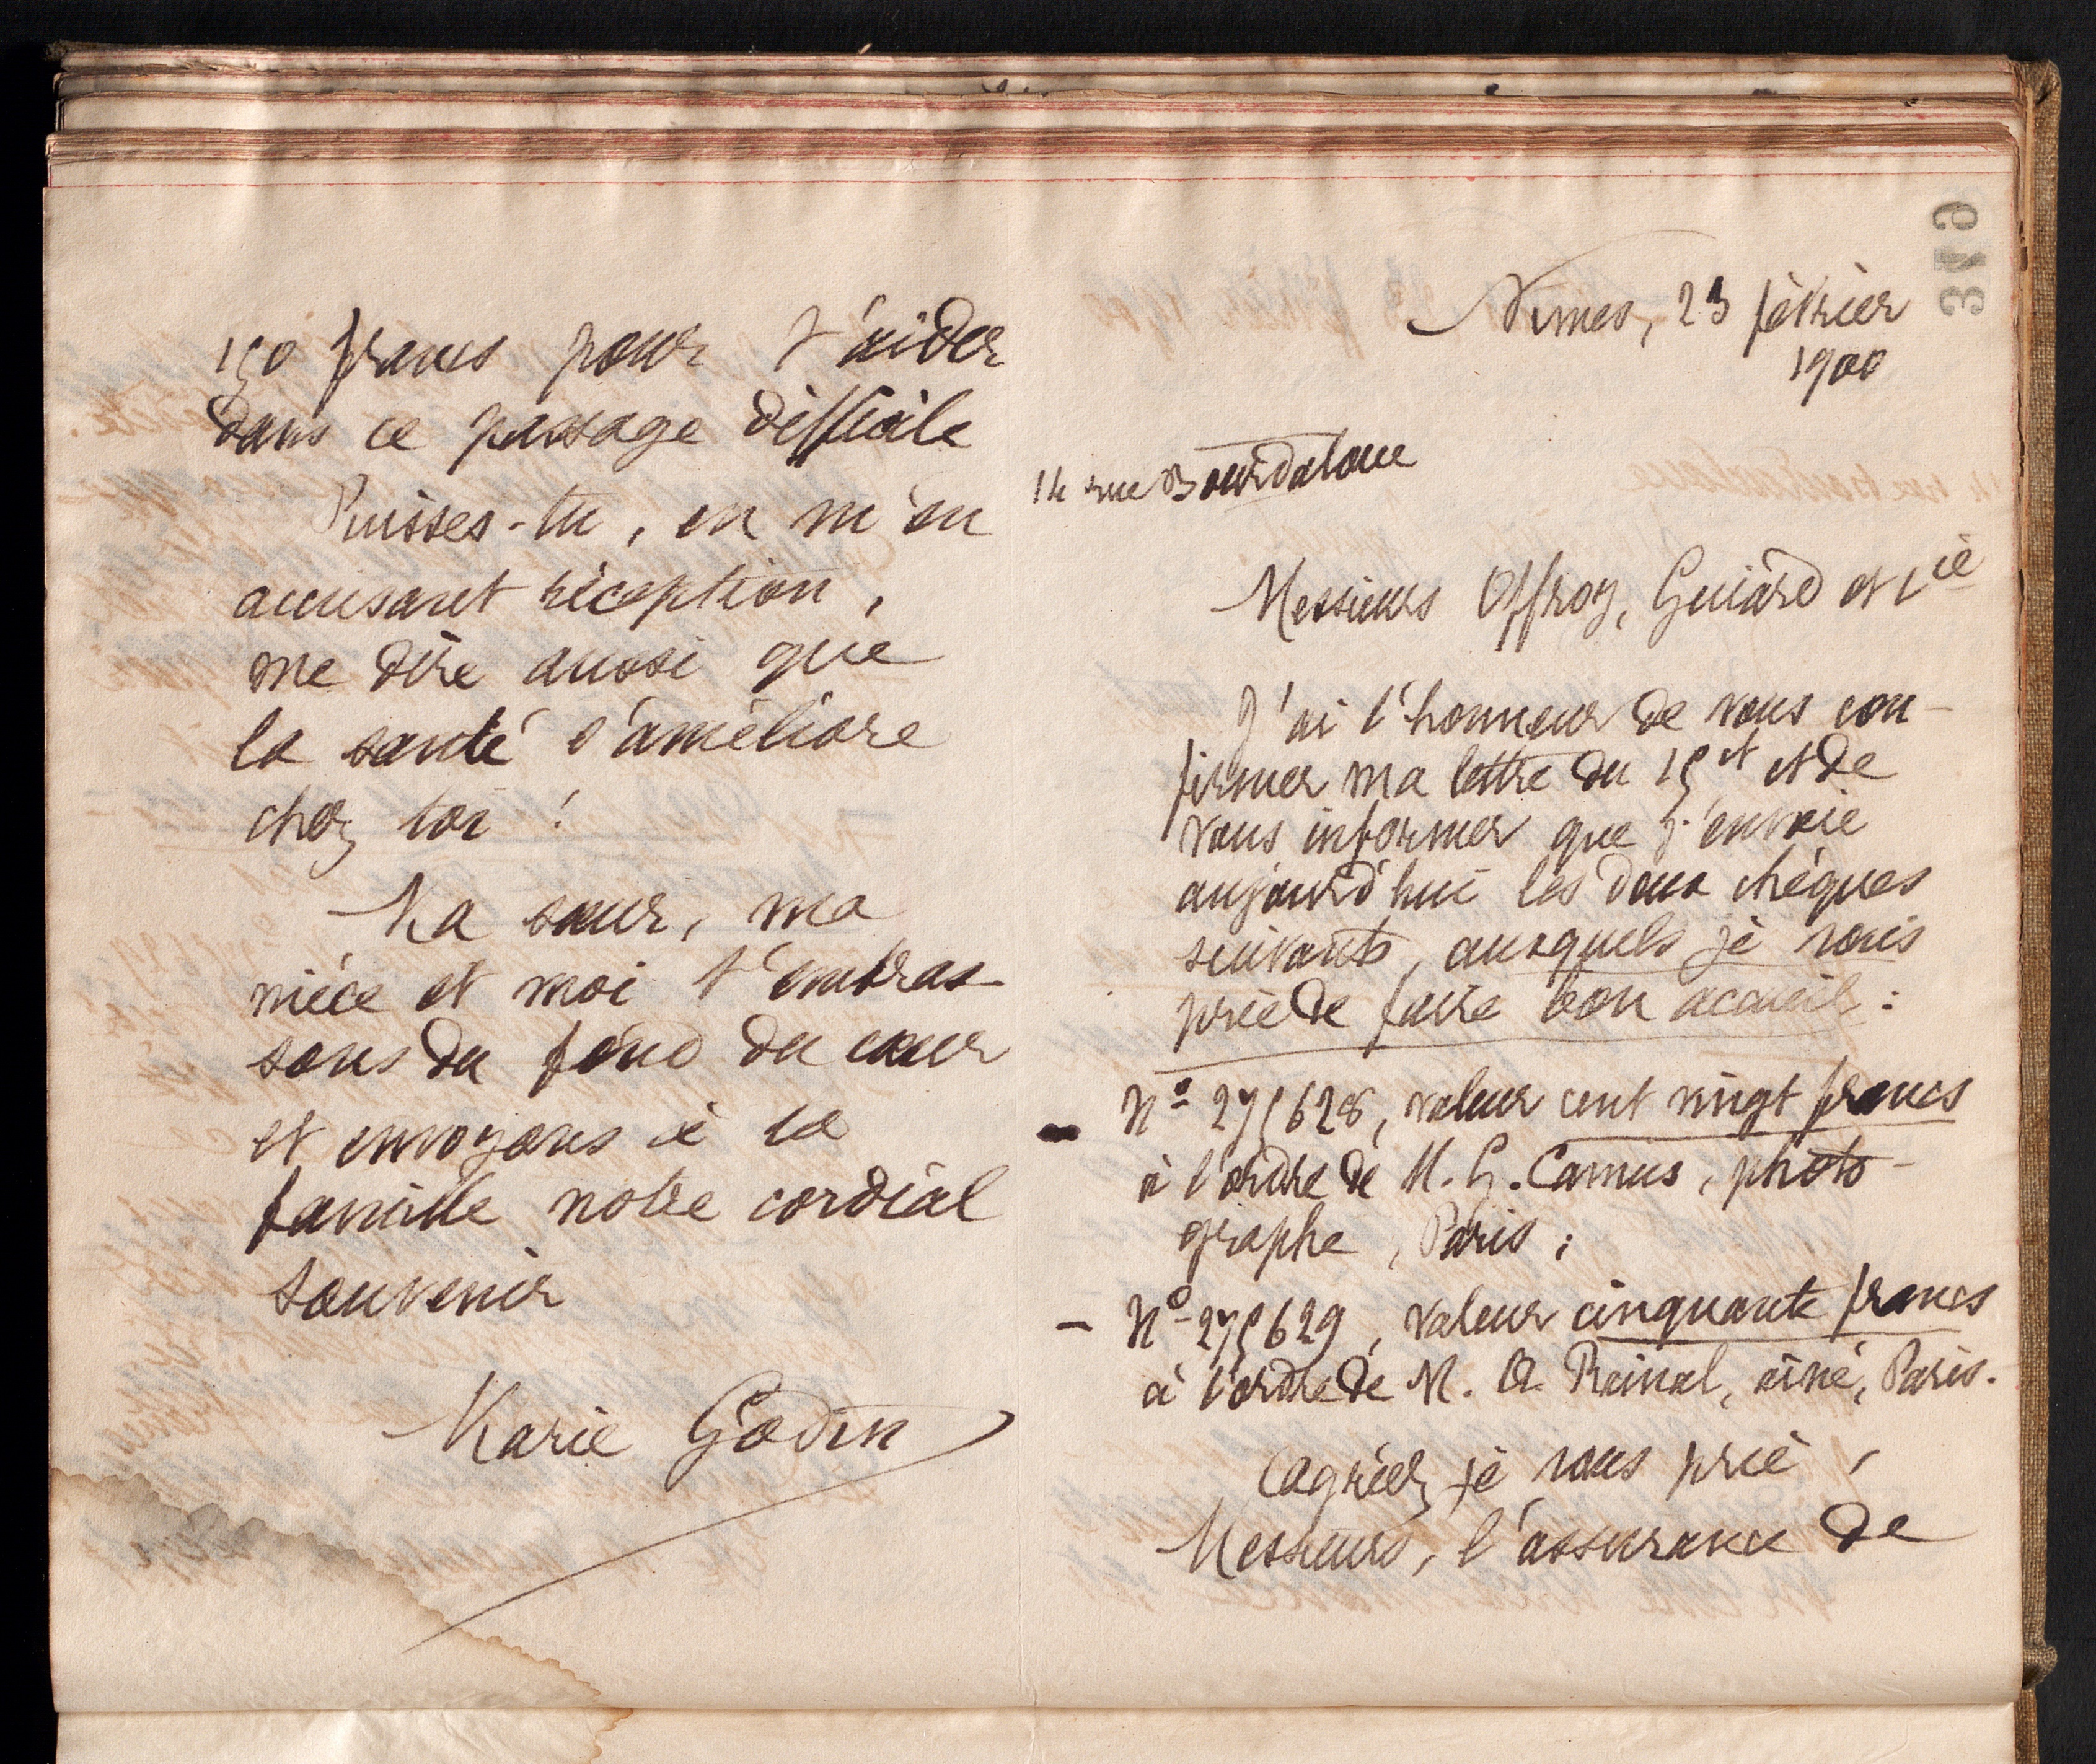 150 francs pour t'aider
dans ce passage difficile
Puisses-tu, en m'en
accusant réception,
me dire aussi que
la santé s'améliore
chez toi !
Ma sœur, ma
nièce et moi t'embras-
sons du fond du cœur
et envoyons à ta
famille notre cordial
souvenir
Marie Godin
319
Nimes, 23 février
1900
14 rue Bourdaloue
Messieurs Offroy, Guiard et Cie
J'ai l'honneur de vous con-
firmer ma lettre du 15 ct et de
vous informer que j'envoie
aujourd'hui les deux chèques
suivants, auxquels je vous
prie de faire bon accueil :
- No 275628, valeur cent vingt francs
à l'ordre de M. G. Camus, photo-
graphe, Paris ;
- No 275629, valeur cinquante francs
à l'ordre de M. A. aîné, Paris.
Agréez, je vous prie,
Messieurs, l'assurance de